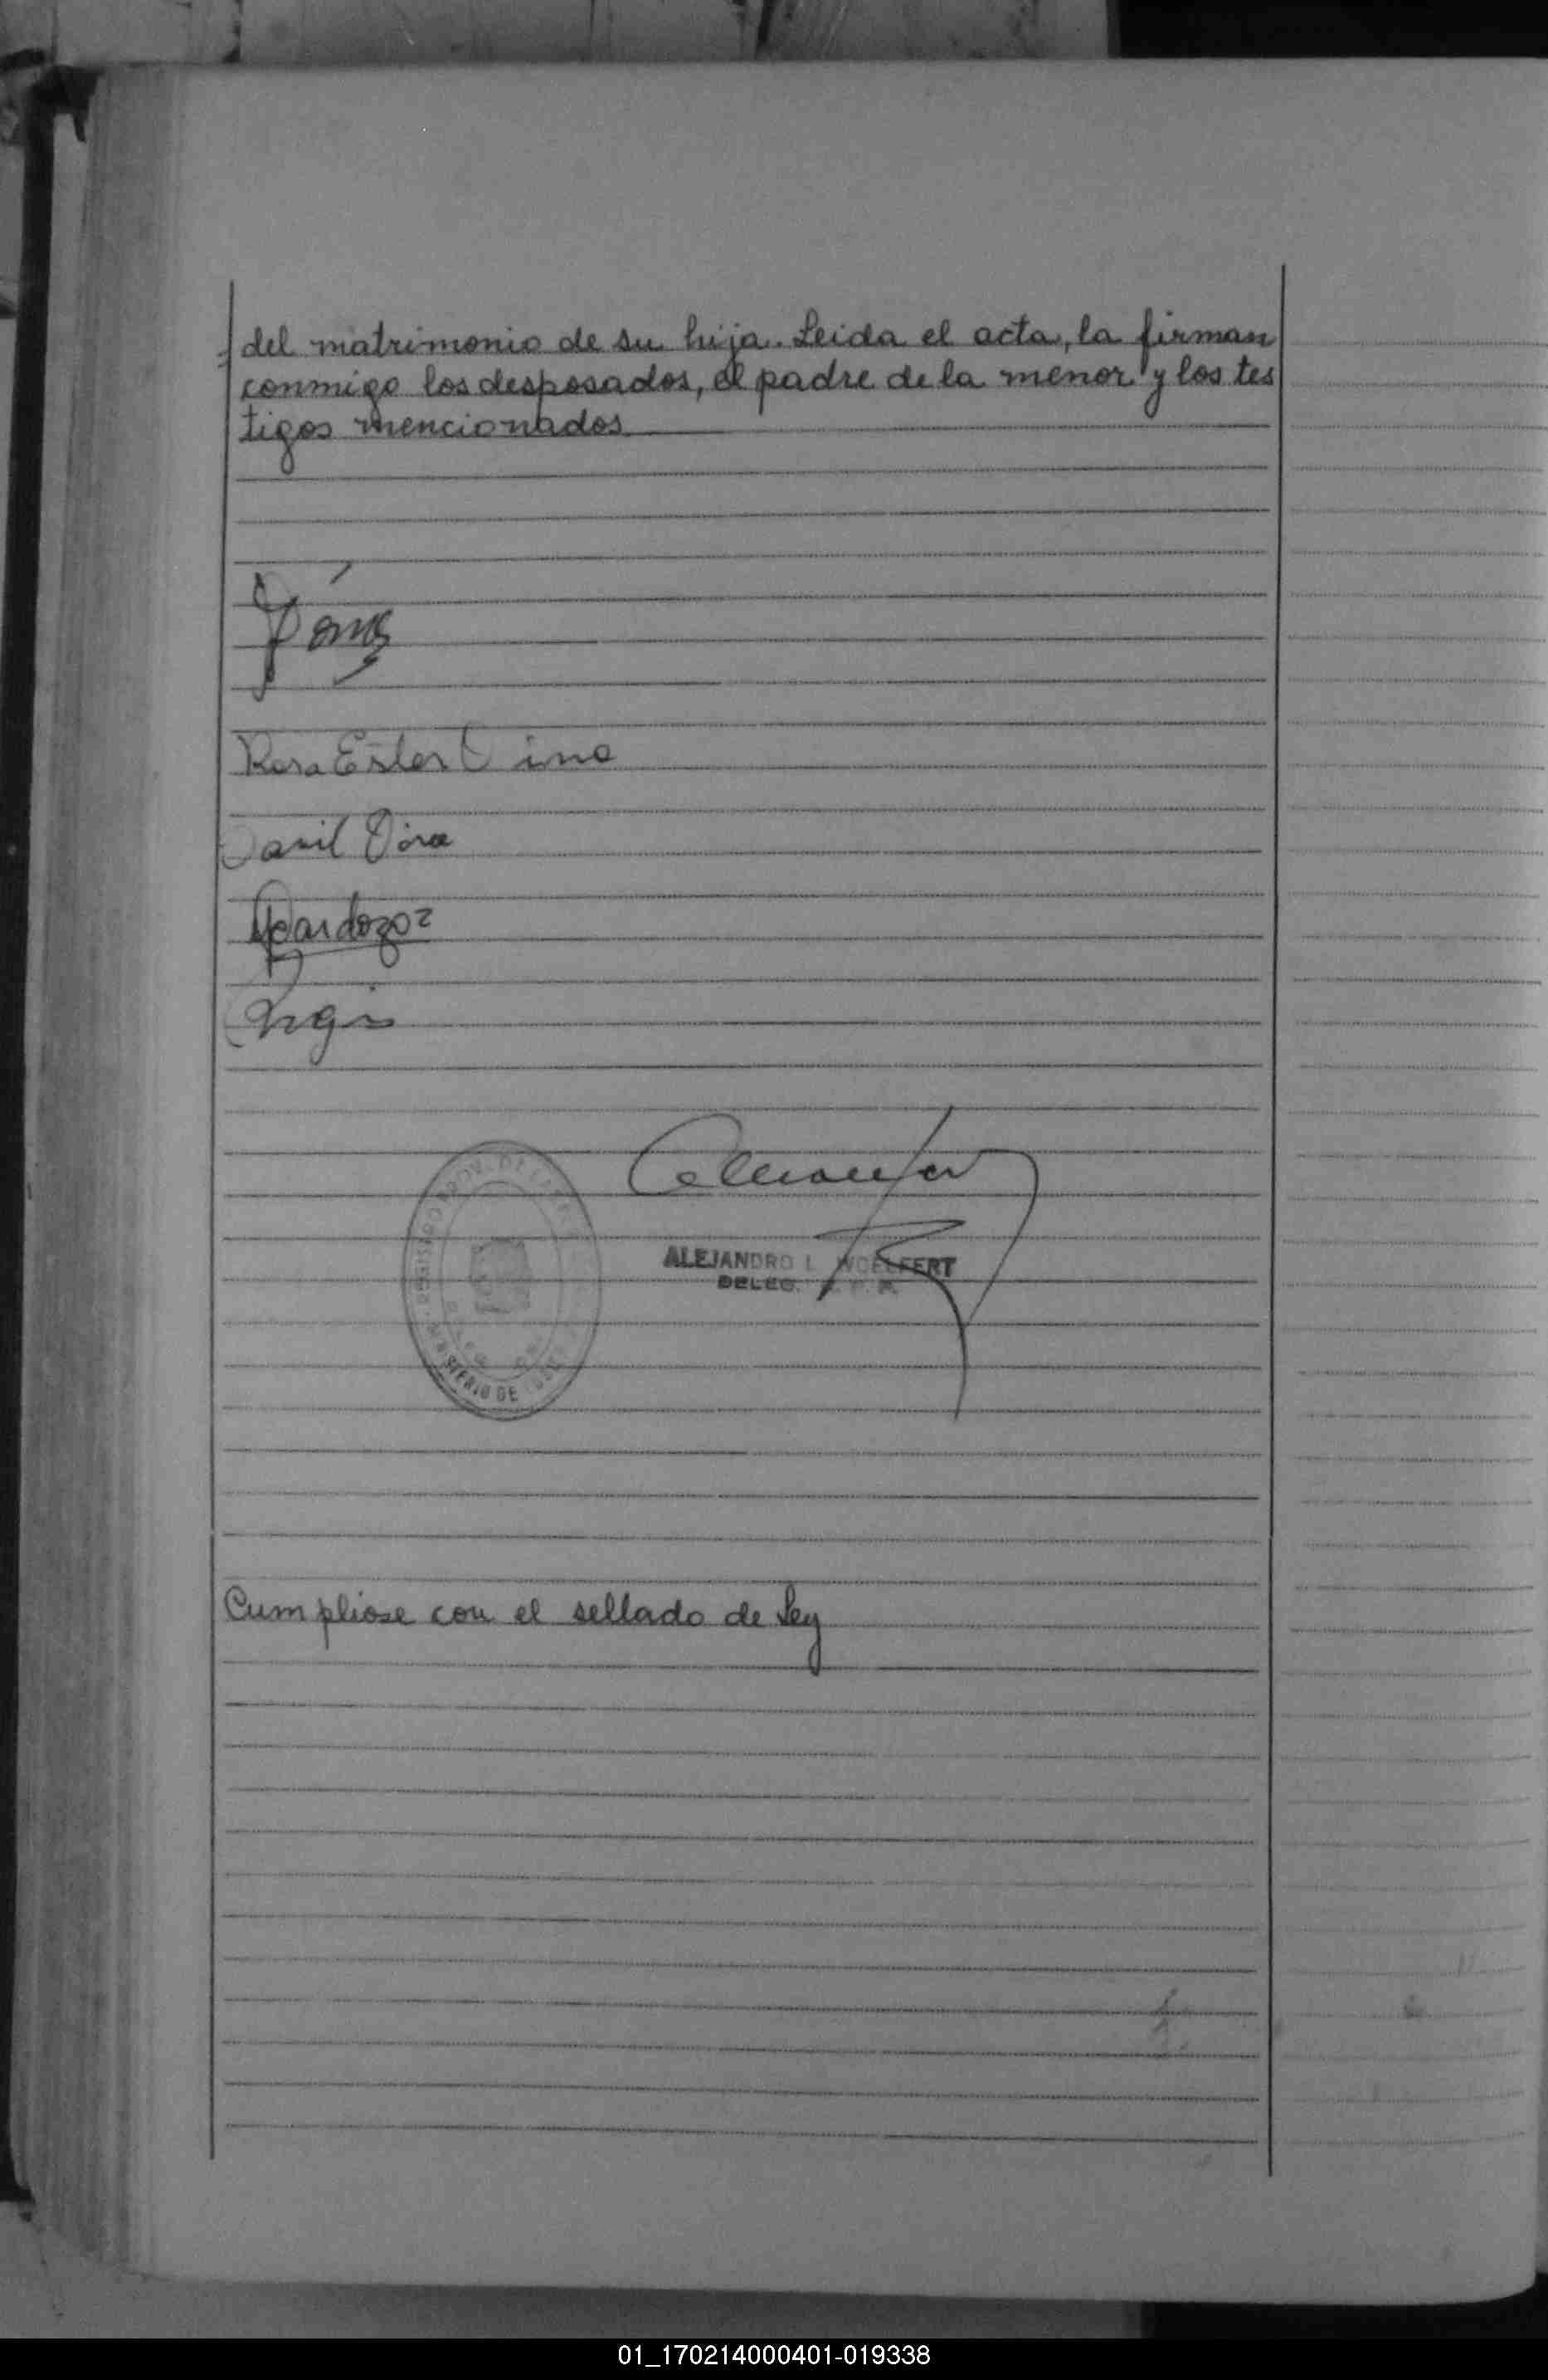 del matrimonio de su hija. Leida el acta, la firman
conmigo los desposados, el padre de la menor y los tes
tigos mencionados
Rosa Ester
Cardozo
ALEJANDRO L. WOELFERT
DELEG.
MINISTERIO DE
Cumpliose con el sellado de Ley
01_170214000401-019338